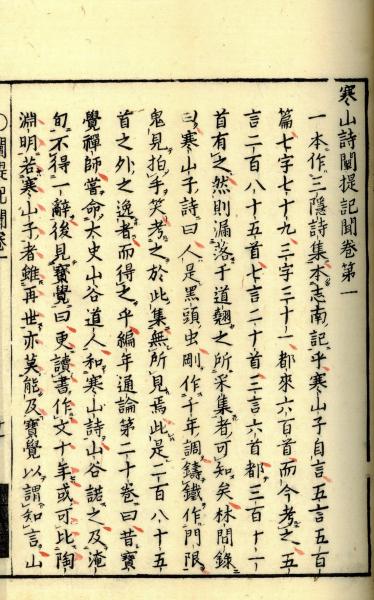 寒山詩闡提記聞卷第一
一本作三隱詩集本志南記乎寒山子自言五言五百
篇七字七十九三字三十一都來六百首而今考之五
言二百八十五首七言二十首三言六首都三百十一
首有之然則漏落于道翹之所采集者可知矣林間錄
曰寒山子詩曰人是黑頭虫剛作千年調鑄鐵作門限
鬼見拍手笑考之於此集無所見焉此是二百八十五
首之外之逸者而得之乎編年通論第二十卷曰昔寶
覺禪師嘗命太史山谷道人和寒山詩山谷諾之及淹
旬不得一辭後見寶覺曰更讀書作文十年或可比陶
淵明若寒山子者雖再世亦莫能及寶覺以謂知言山
闡提記聞卷一